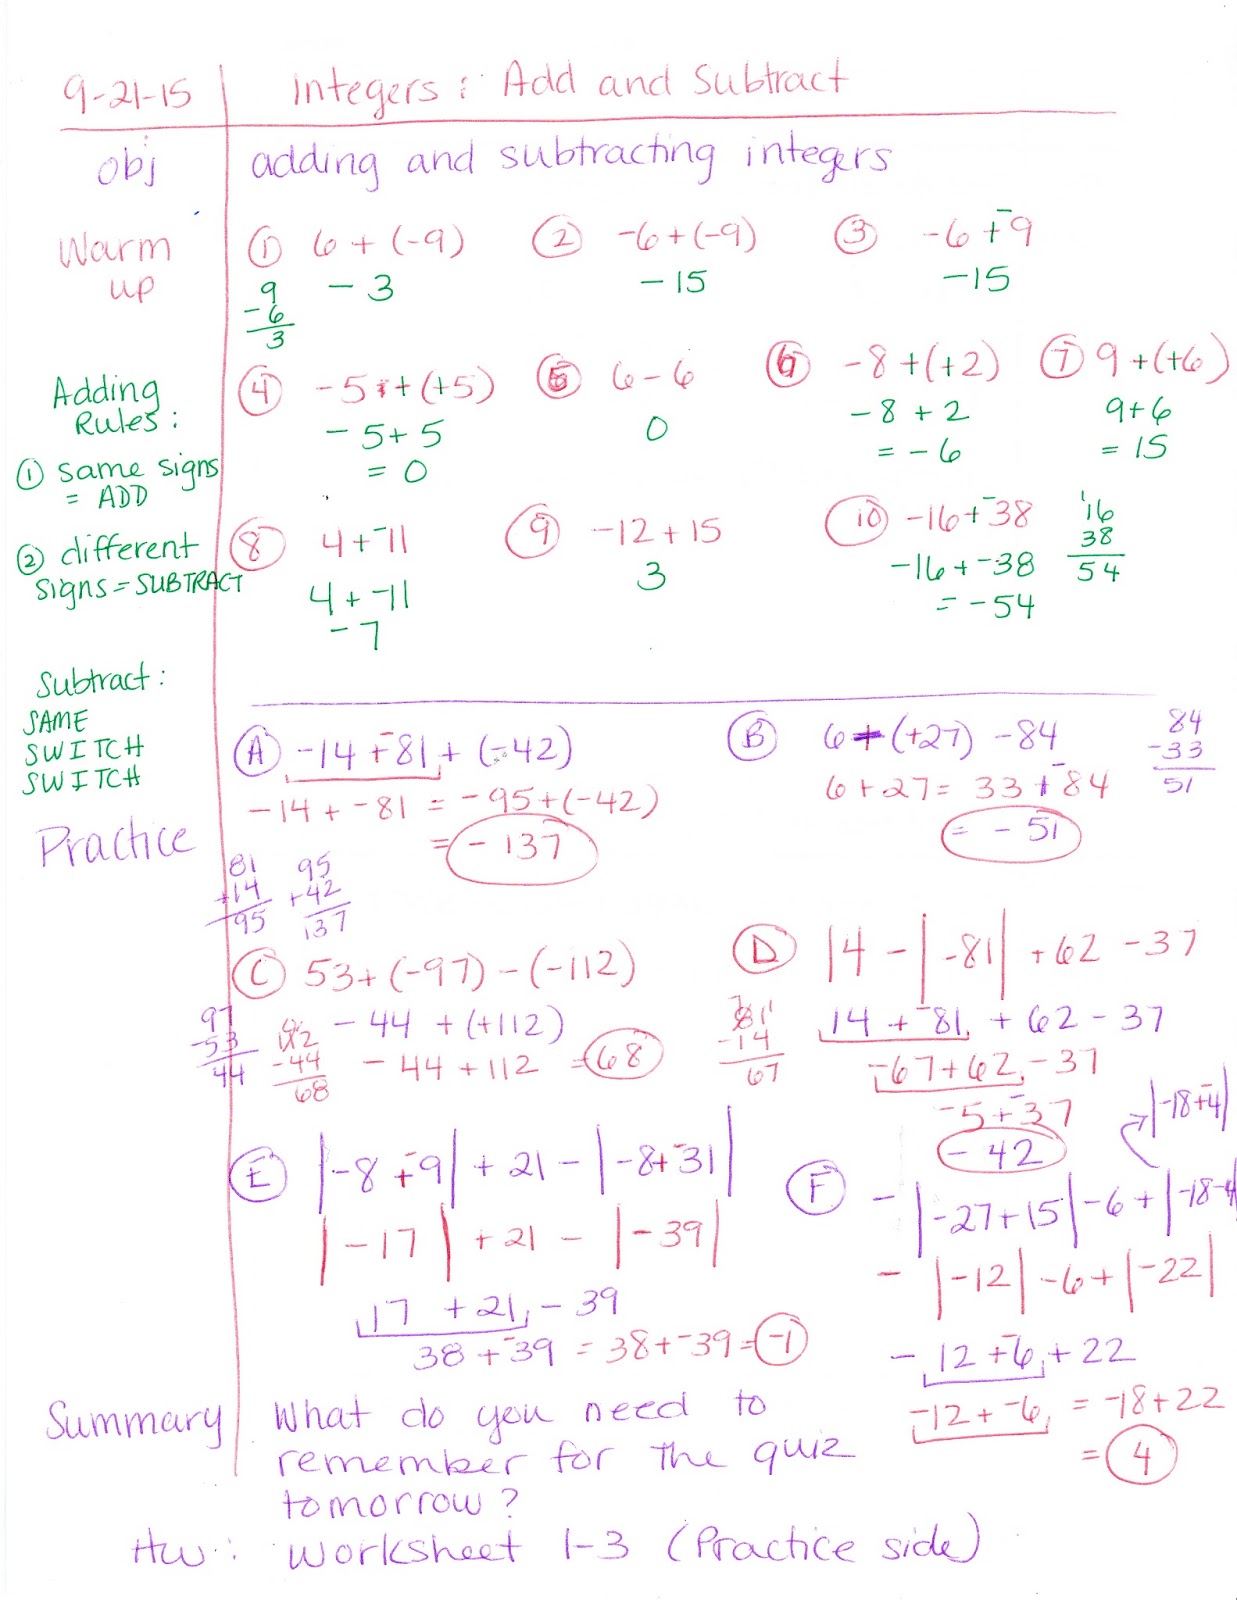 9-21-15 Integers: Add and Subtract
obj adding and subtracting integers
Warm up
① 6 + (-9) ② -6 + (-9) ③ -6 + -9
-3 -15 -15
9
-6
3
Adding Rules:
① same signs
= ADD
② different
signs = SUBTRACT
④ -5 + (+5) ⑤ 6 - 6 ⑥ -8 + (+2) ⑦ 9 + (+6)
-5 + 5 0 -8 + 2 9 + 6
= 0 = -6 = 15
⑧ 4 + -11 ⑨ -12 + 15 ⑩ -16 + -38
4 + -11 3 -16 + -38
-7 = -54
16
38
54
Subtract:
SAME
SWITCH
SWITCH
Practice
Ⓐ -14 + -81 + (-42)
-14 + -81 = -95 + (-42)
= -137
81
+14
95
95
+42
137
Ⓑ 6 + (+27) - 84
6 + 27 = 33 + -84
= -51
84
-33
51
Ⓒ 53 + (-97) - (-112)
-44 + (+112)
-44 + 112 = 68
97
-53
44
112
-44
68
Ⓓ |4 - |-81| + 62 - 37
14 + -81 + 62 - 37
-67 + 62 - 37
-5 + -37
-42
81
-14
67
Ⓔ |-8 + -9| + 21 - |-8 + -31|
|-17| + 21 - |-39|
17 + 21 - 39
38 + -39 = 38 + -39 = -1
Ⓕ - |-27 + 15| - 6 + |-18 - 4|
|-18 + -4|
- |-12| - 6 + |-22|
- 12 + -6 + 22
-12 + -6 = -18 + 22
= 4
Summary What do you need to
remember for the quiz
tomorrow?
HW: Worksheet 1-3 (Practice side)